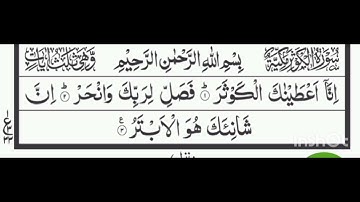 سُوْرَةُ الْكَوْثَرِ مَكِّيَّةٌ بِسْمِ اللهِ الرَّحْمٰنِ الرَّحِيْمِ وَهِيَ ثَلٰثُ اٰيَاتٍ
اِنَّاۤ اَعْطَيْنٰكَ الْكَوْثَرَ ؕ﴿۱﴾ فَصَلِّ لِرَبِّكَ وَانْحَرْ ؕ﴿۲﴾ اِنَّ
شَانِئَكَ هُوَ الْاَبْتَرُ ﴿۳﴾